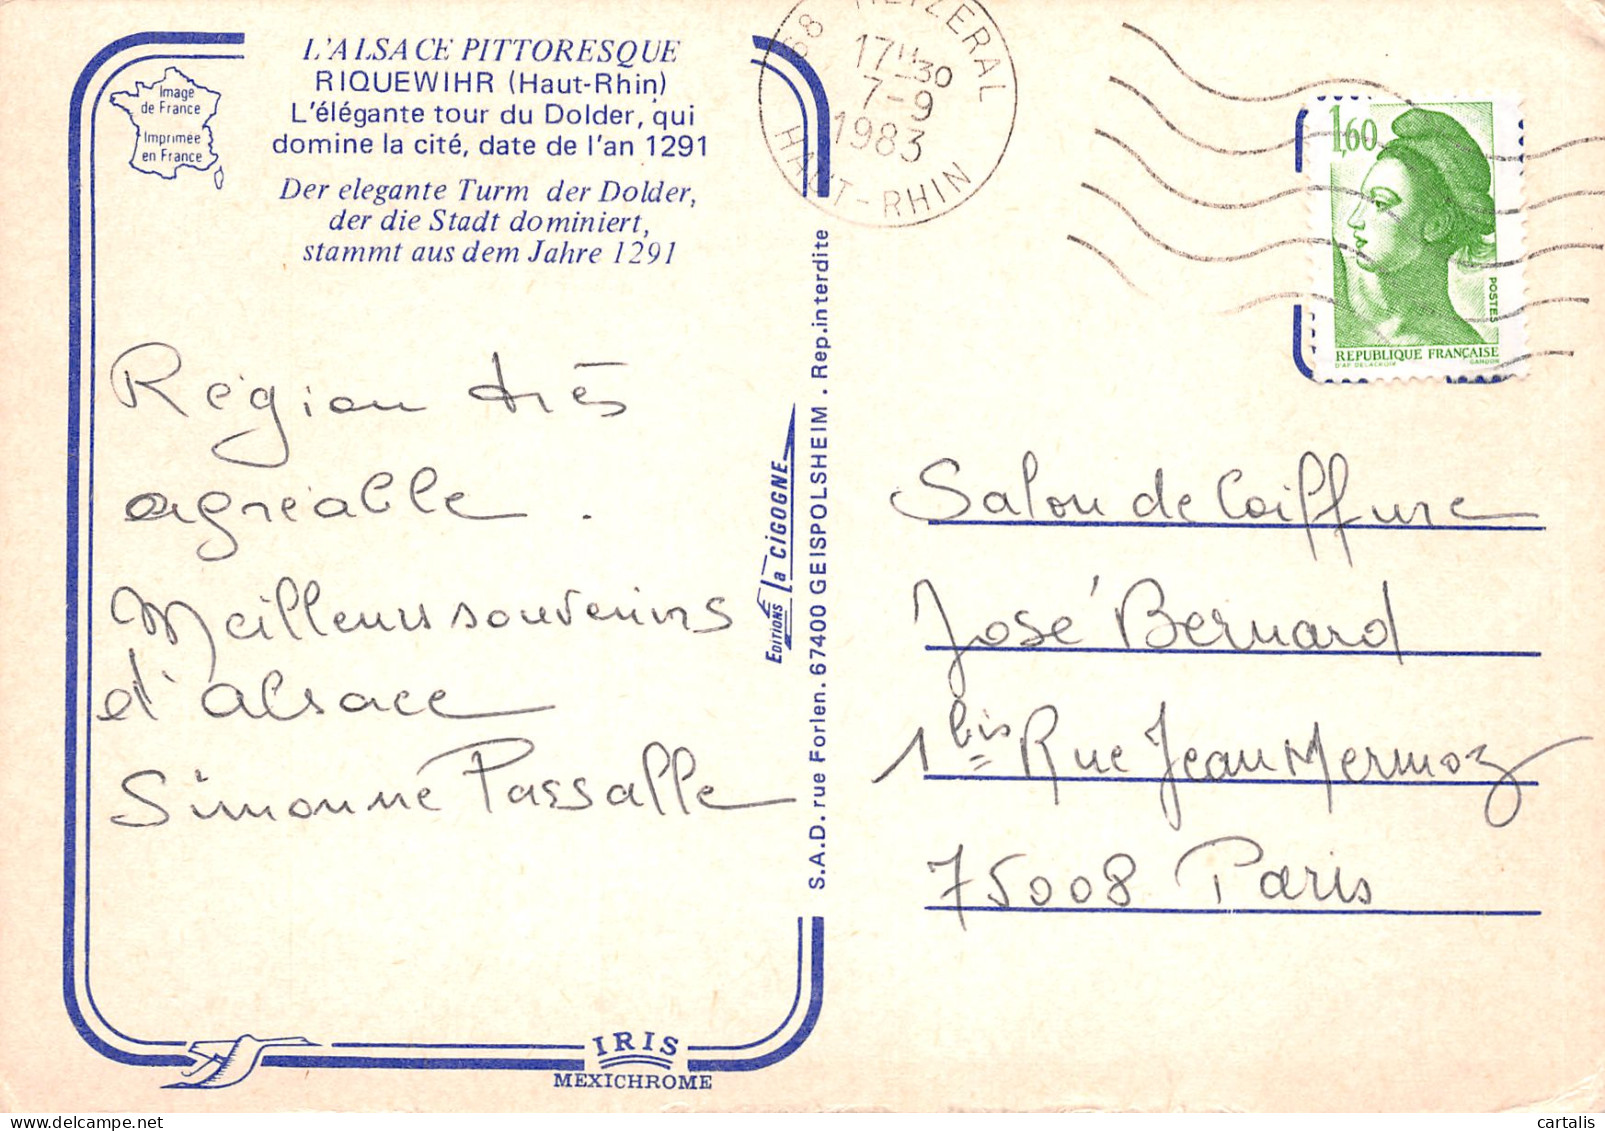 L'ALSACE PITTORESQUE
RIQUEWIHR (Haut-Rhin)
L'élégante tour du Dolder, qui
domine la cité, date de l'an 1291
Der elegante Turm der Dolder,
der die Stadt dominiert,
stammt aus dem Jahre 1291
Image
de France
Imprimée
en France
Région très
agréable.
Meilleurs souvenirs
d'alsace
Simonne Passalle
EDITIONS la CIGOGNE
S.A.D. rue Forlen. 67400 GEISPOLSHEIM. Rep.interdite
IRIS
MEXICHROME
68 METZERAL
17H30
7-9
1983
HAUT-RHIN
1,60
POSTES
REPUBLIQUE FRANÇAISE
D'AP. DELACROIX GANDON
Salon de Coiffure
José Bernard
1bis Rue Jean Mermoz
75008 Paris